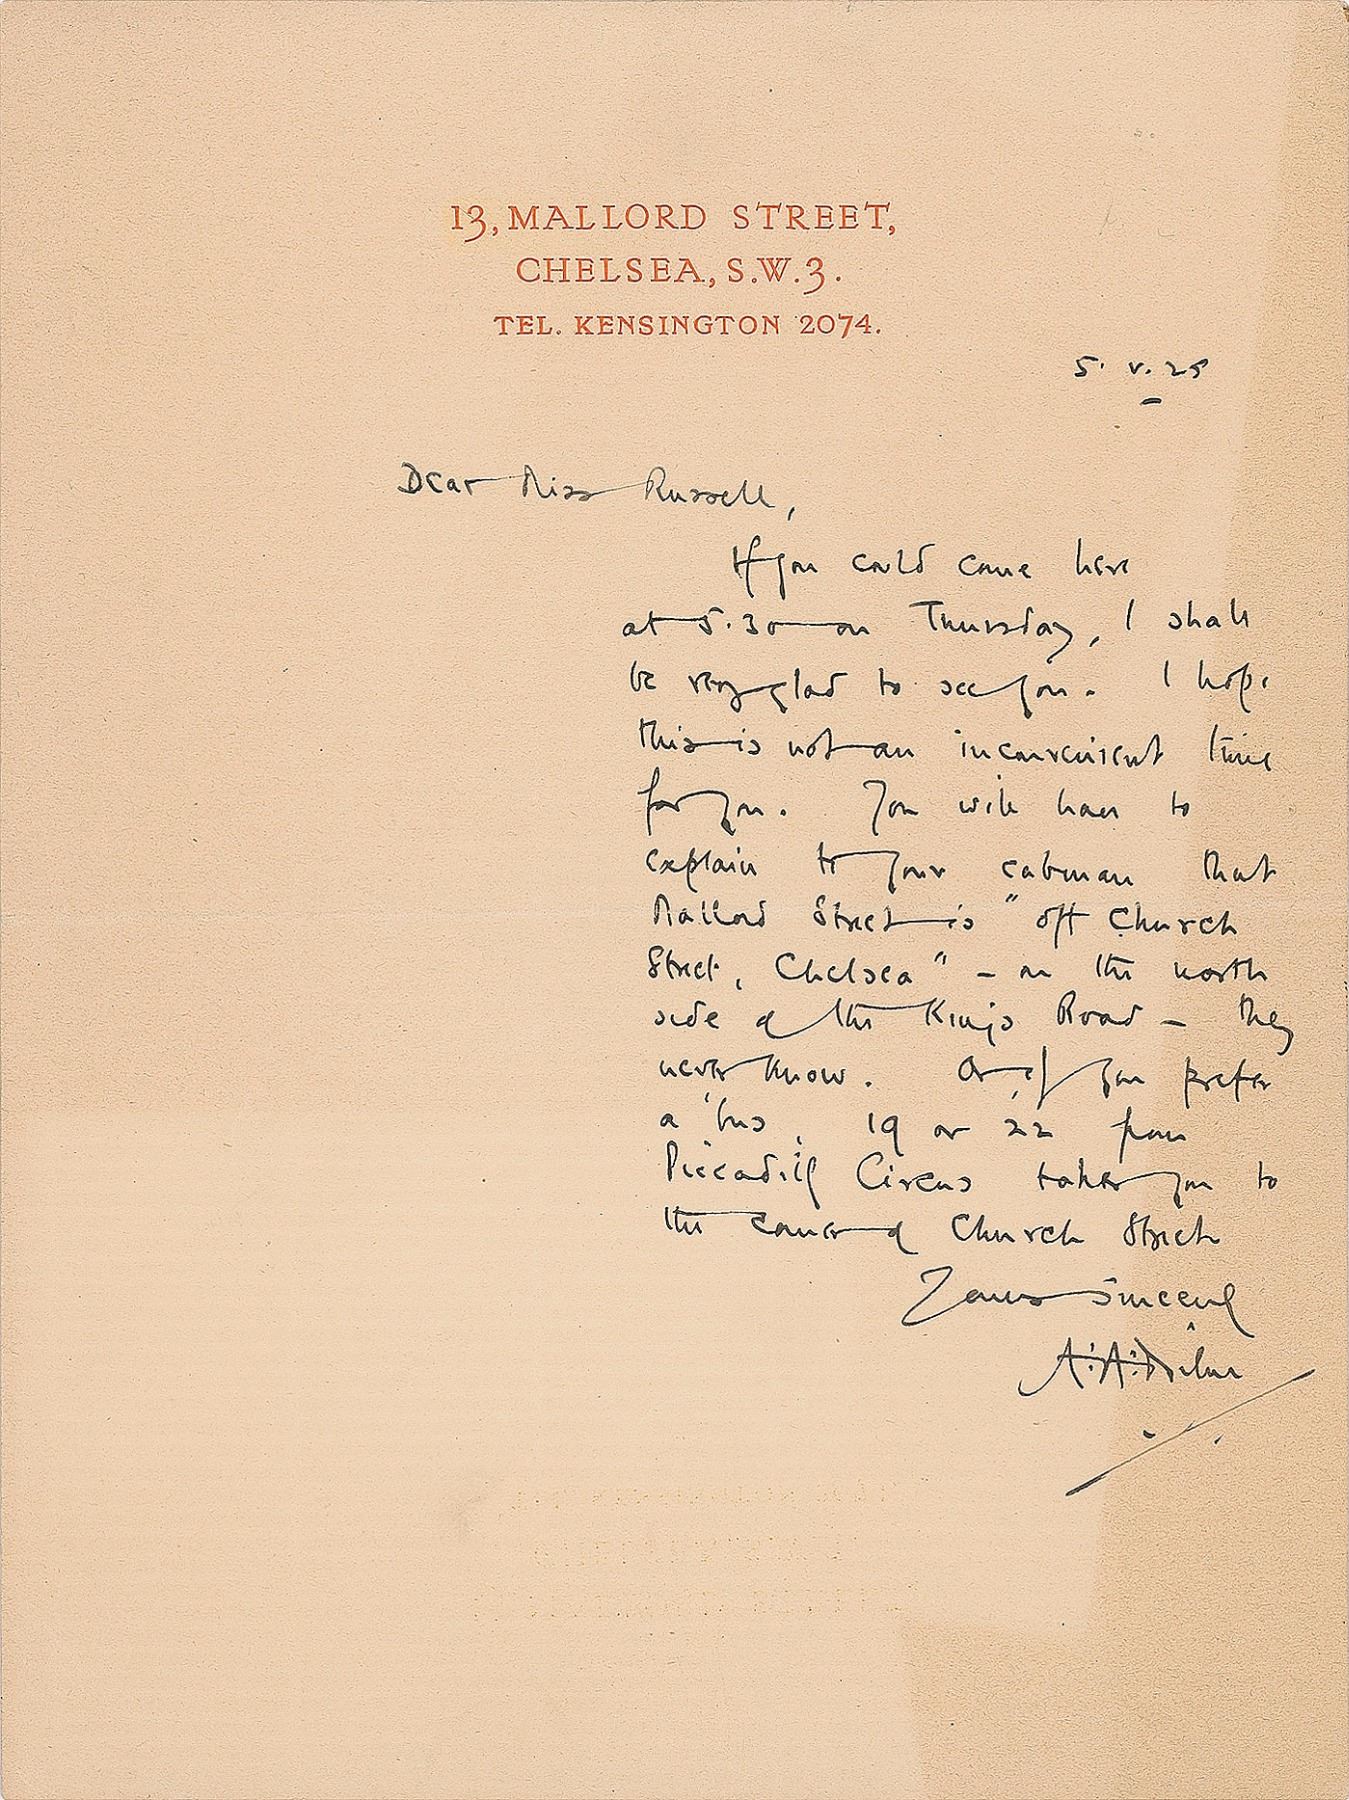 13, MALLORD STREET,
CHELSEA, S.W.3.
TEL. KENSINGTON 2074.
5. V. 25
Dear Miss Russell,
If you could come here
at 5.30 on Thursday, I shall
be very glad to see you. I hope
this is not an inconvenient time
for you. You will have to
explain to your cabman that
Mallord Street is "off Church
Street, Chelsea" - on the north
side of the Kings Road - they
never know. Or, if you prefer
a 'bus, 19 or 22 from
Piccadilly Circus takes you to
the corner of Church Street
Yours sincerely
A. A. Milne